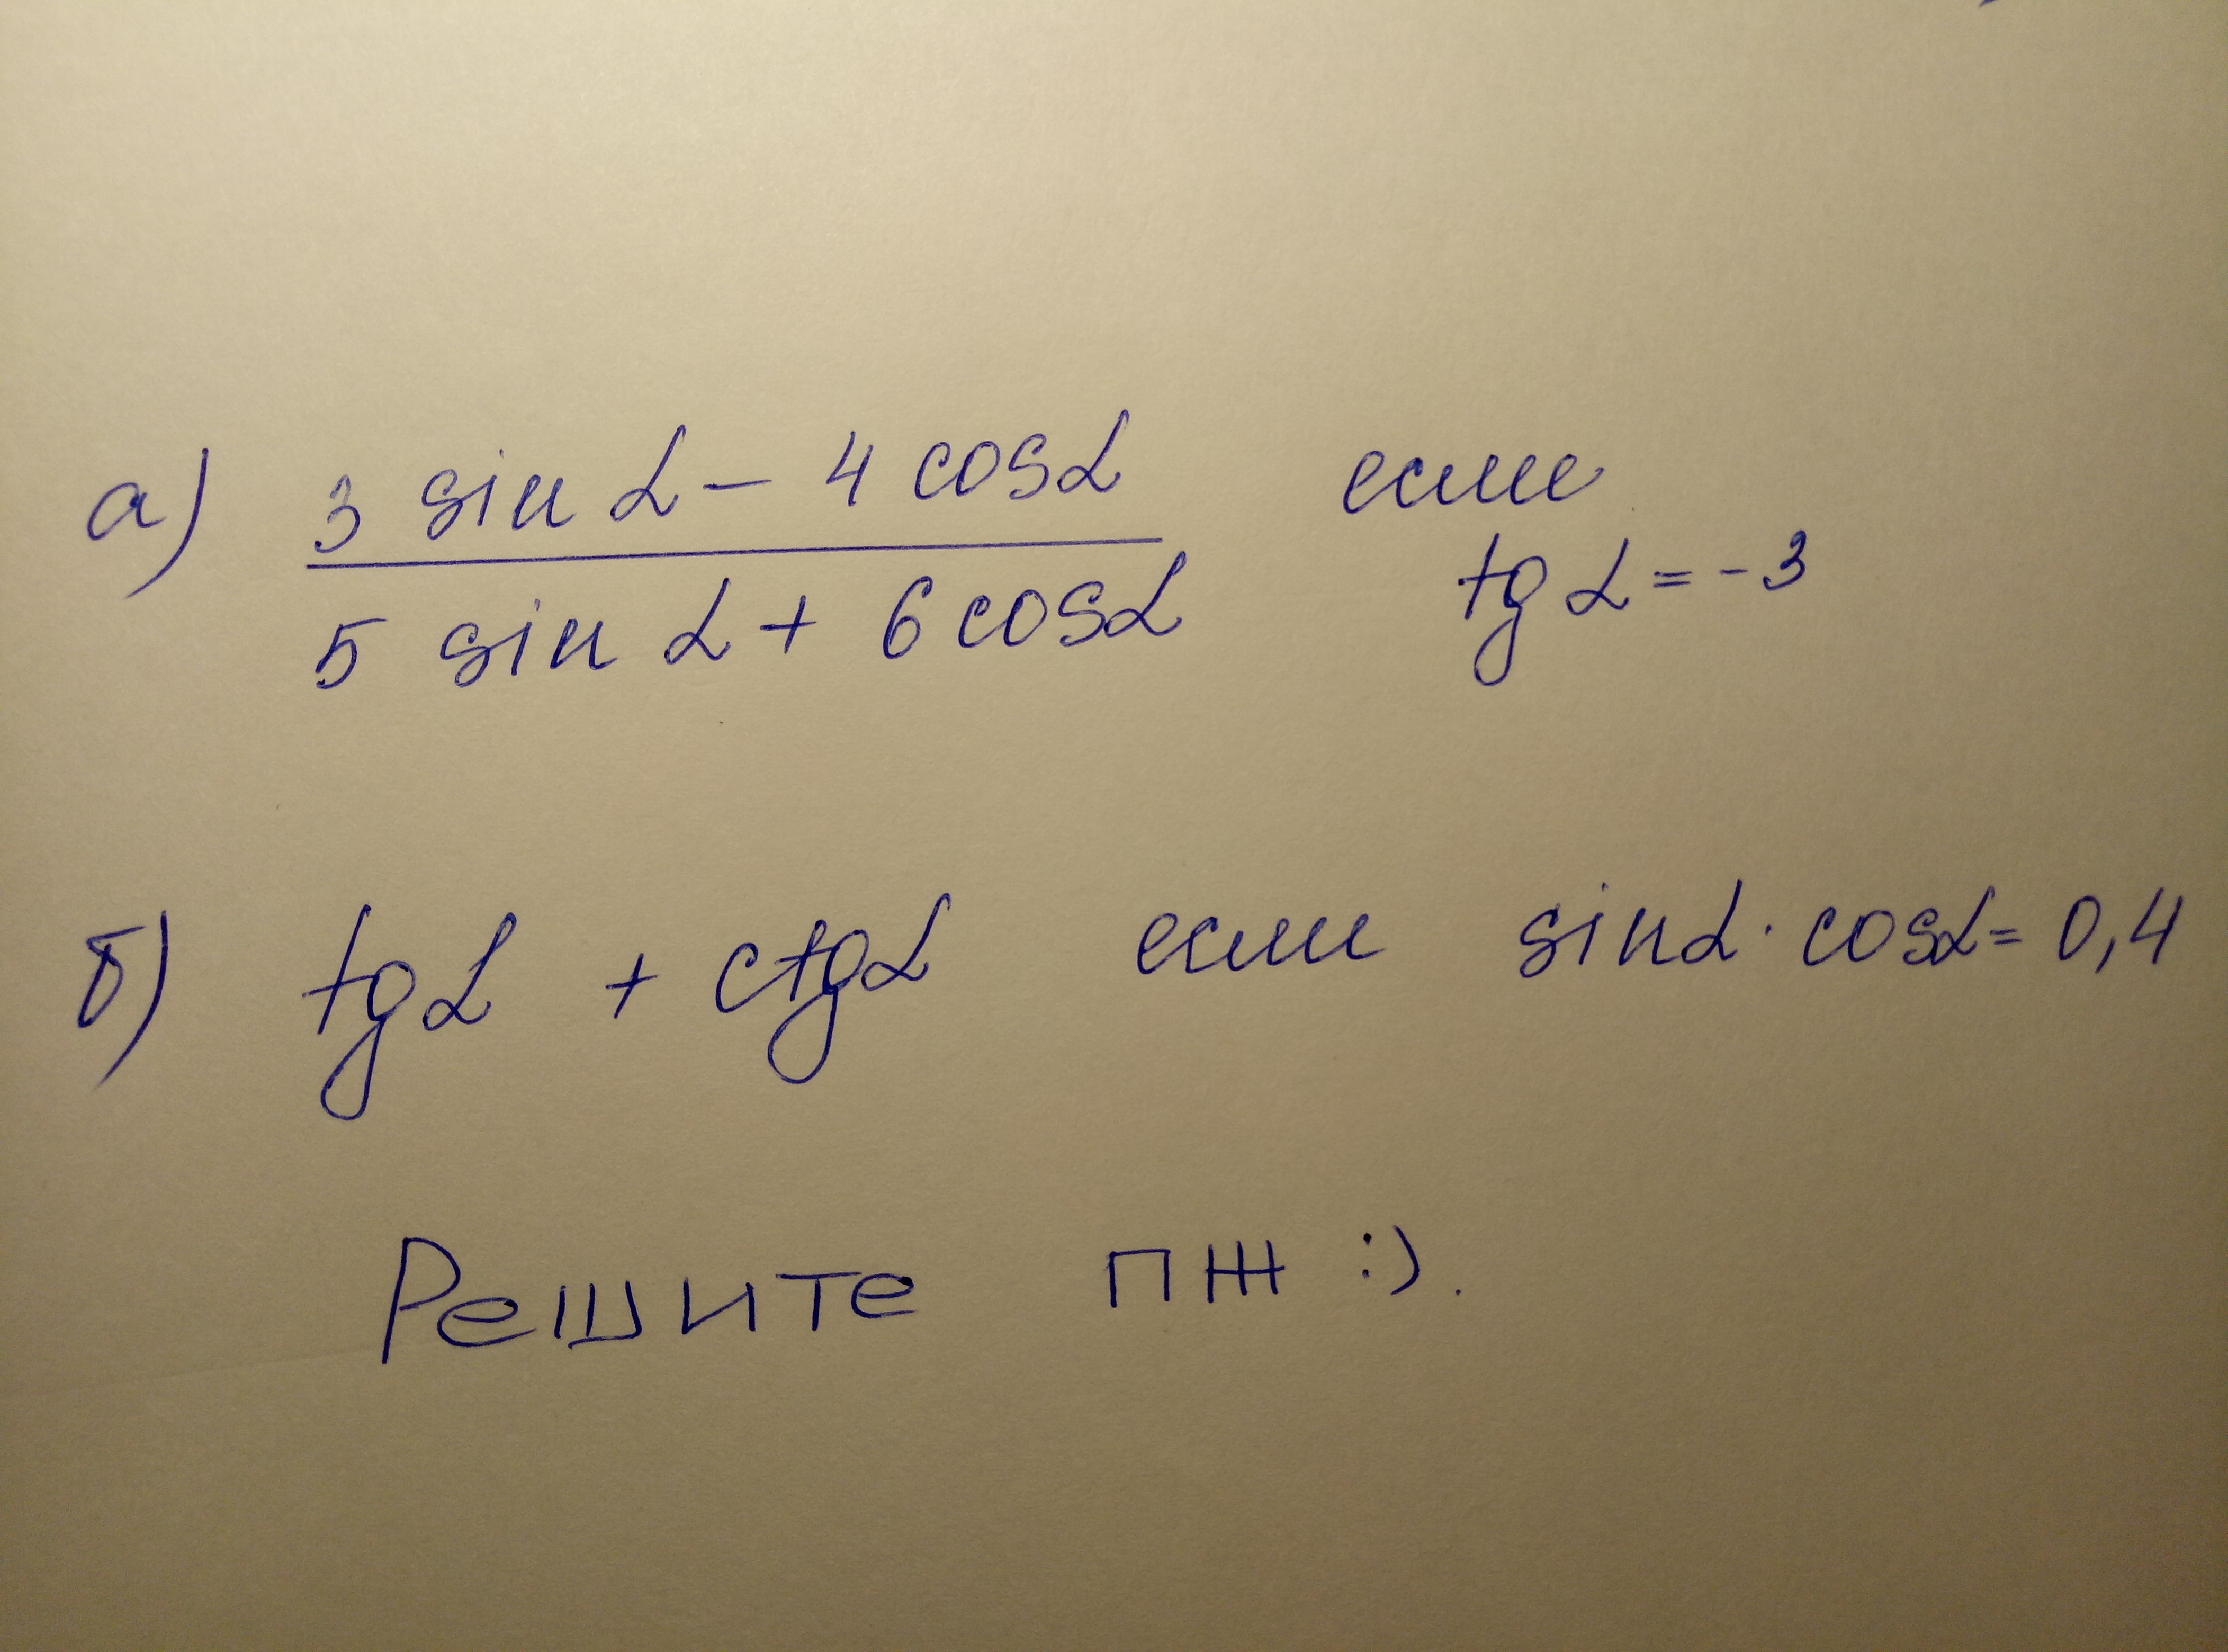 а) 3 sin α - 4 cos α если
5 sin α + 6 cos α tg α = -3
б) tg α + ctg α если sin α · cos α = 0,4
Решите пж :).